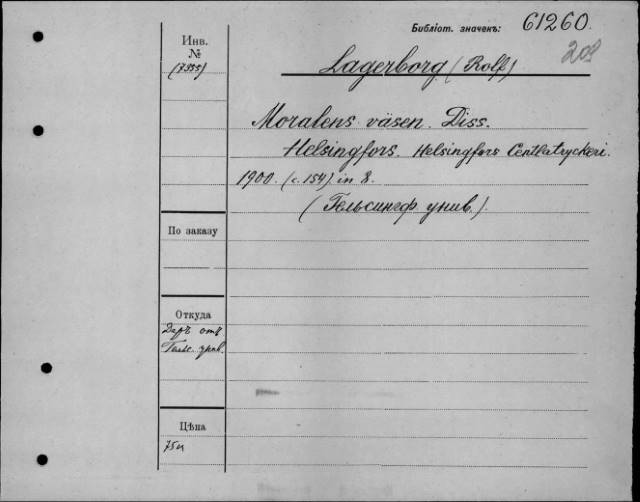 Библіот. значекъ: 61260.
208
Инв.
№
(7355)
Lagerborg (Rolf)
Moralens väsen. Diss.
Helsingfors. Helsingfors Centraltryckeri.
1900. (c. 154). in 8.
(Гельсингф. унив.).
По заказу
Откуда
Даръ отъ
Гельс. унив.
Цѣна
75 к